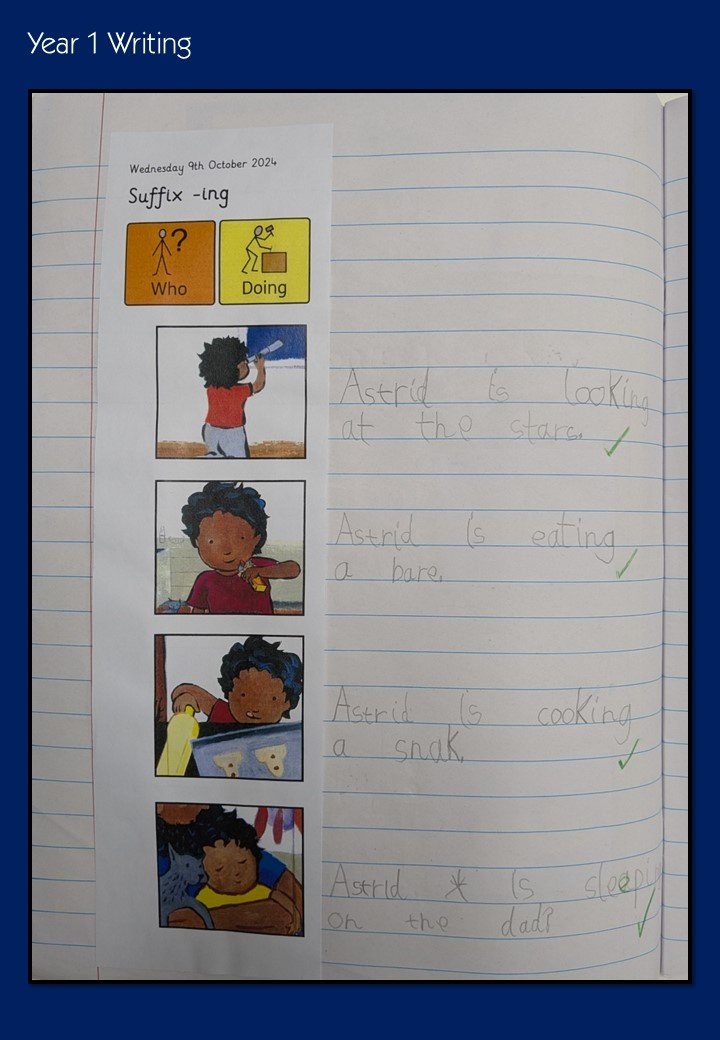 Year 1 Writing
Wednesday 9th October 2024
Suffix -ing
Who
Doing
Astrid is looking
at the stars.
Astrid is eating
a bare.
Astrid is cooking
a snak.
Astrid is
on the dad?